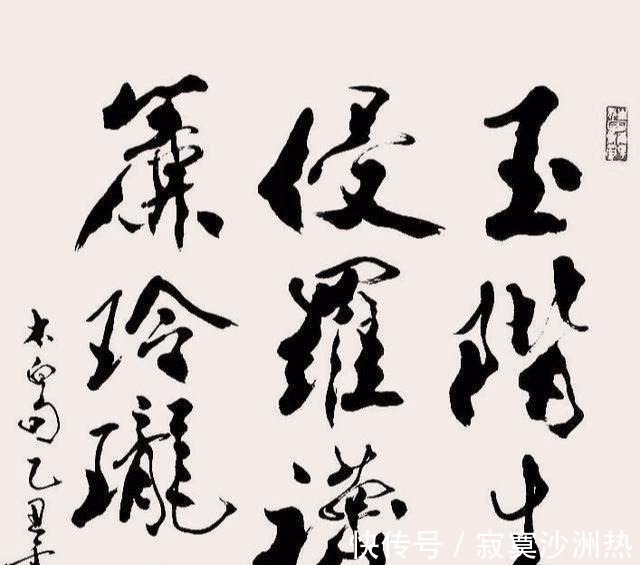 玉階生
侵羅襪
簾玲瓏
白句乙丑
快传号 / 寂寞沙洲热